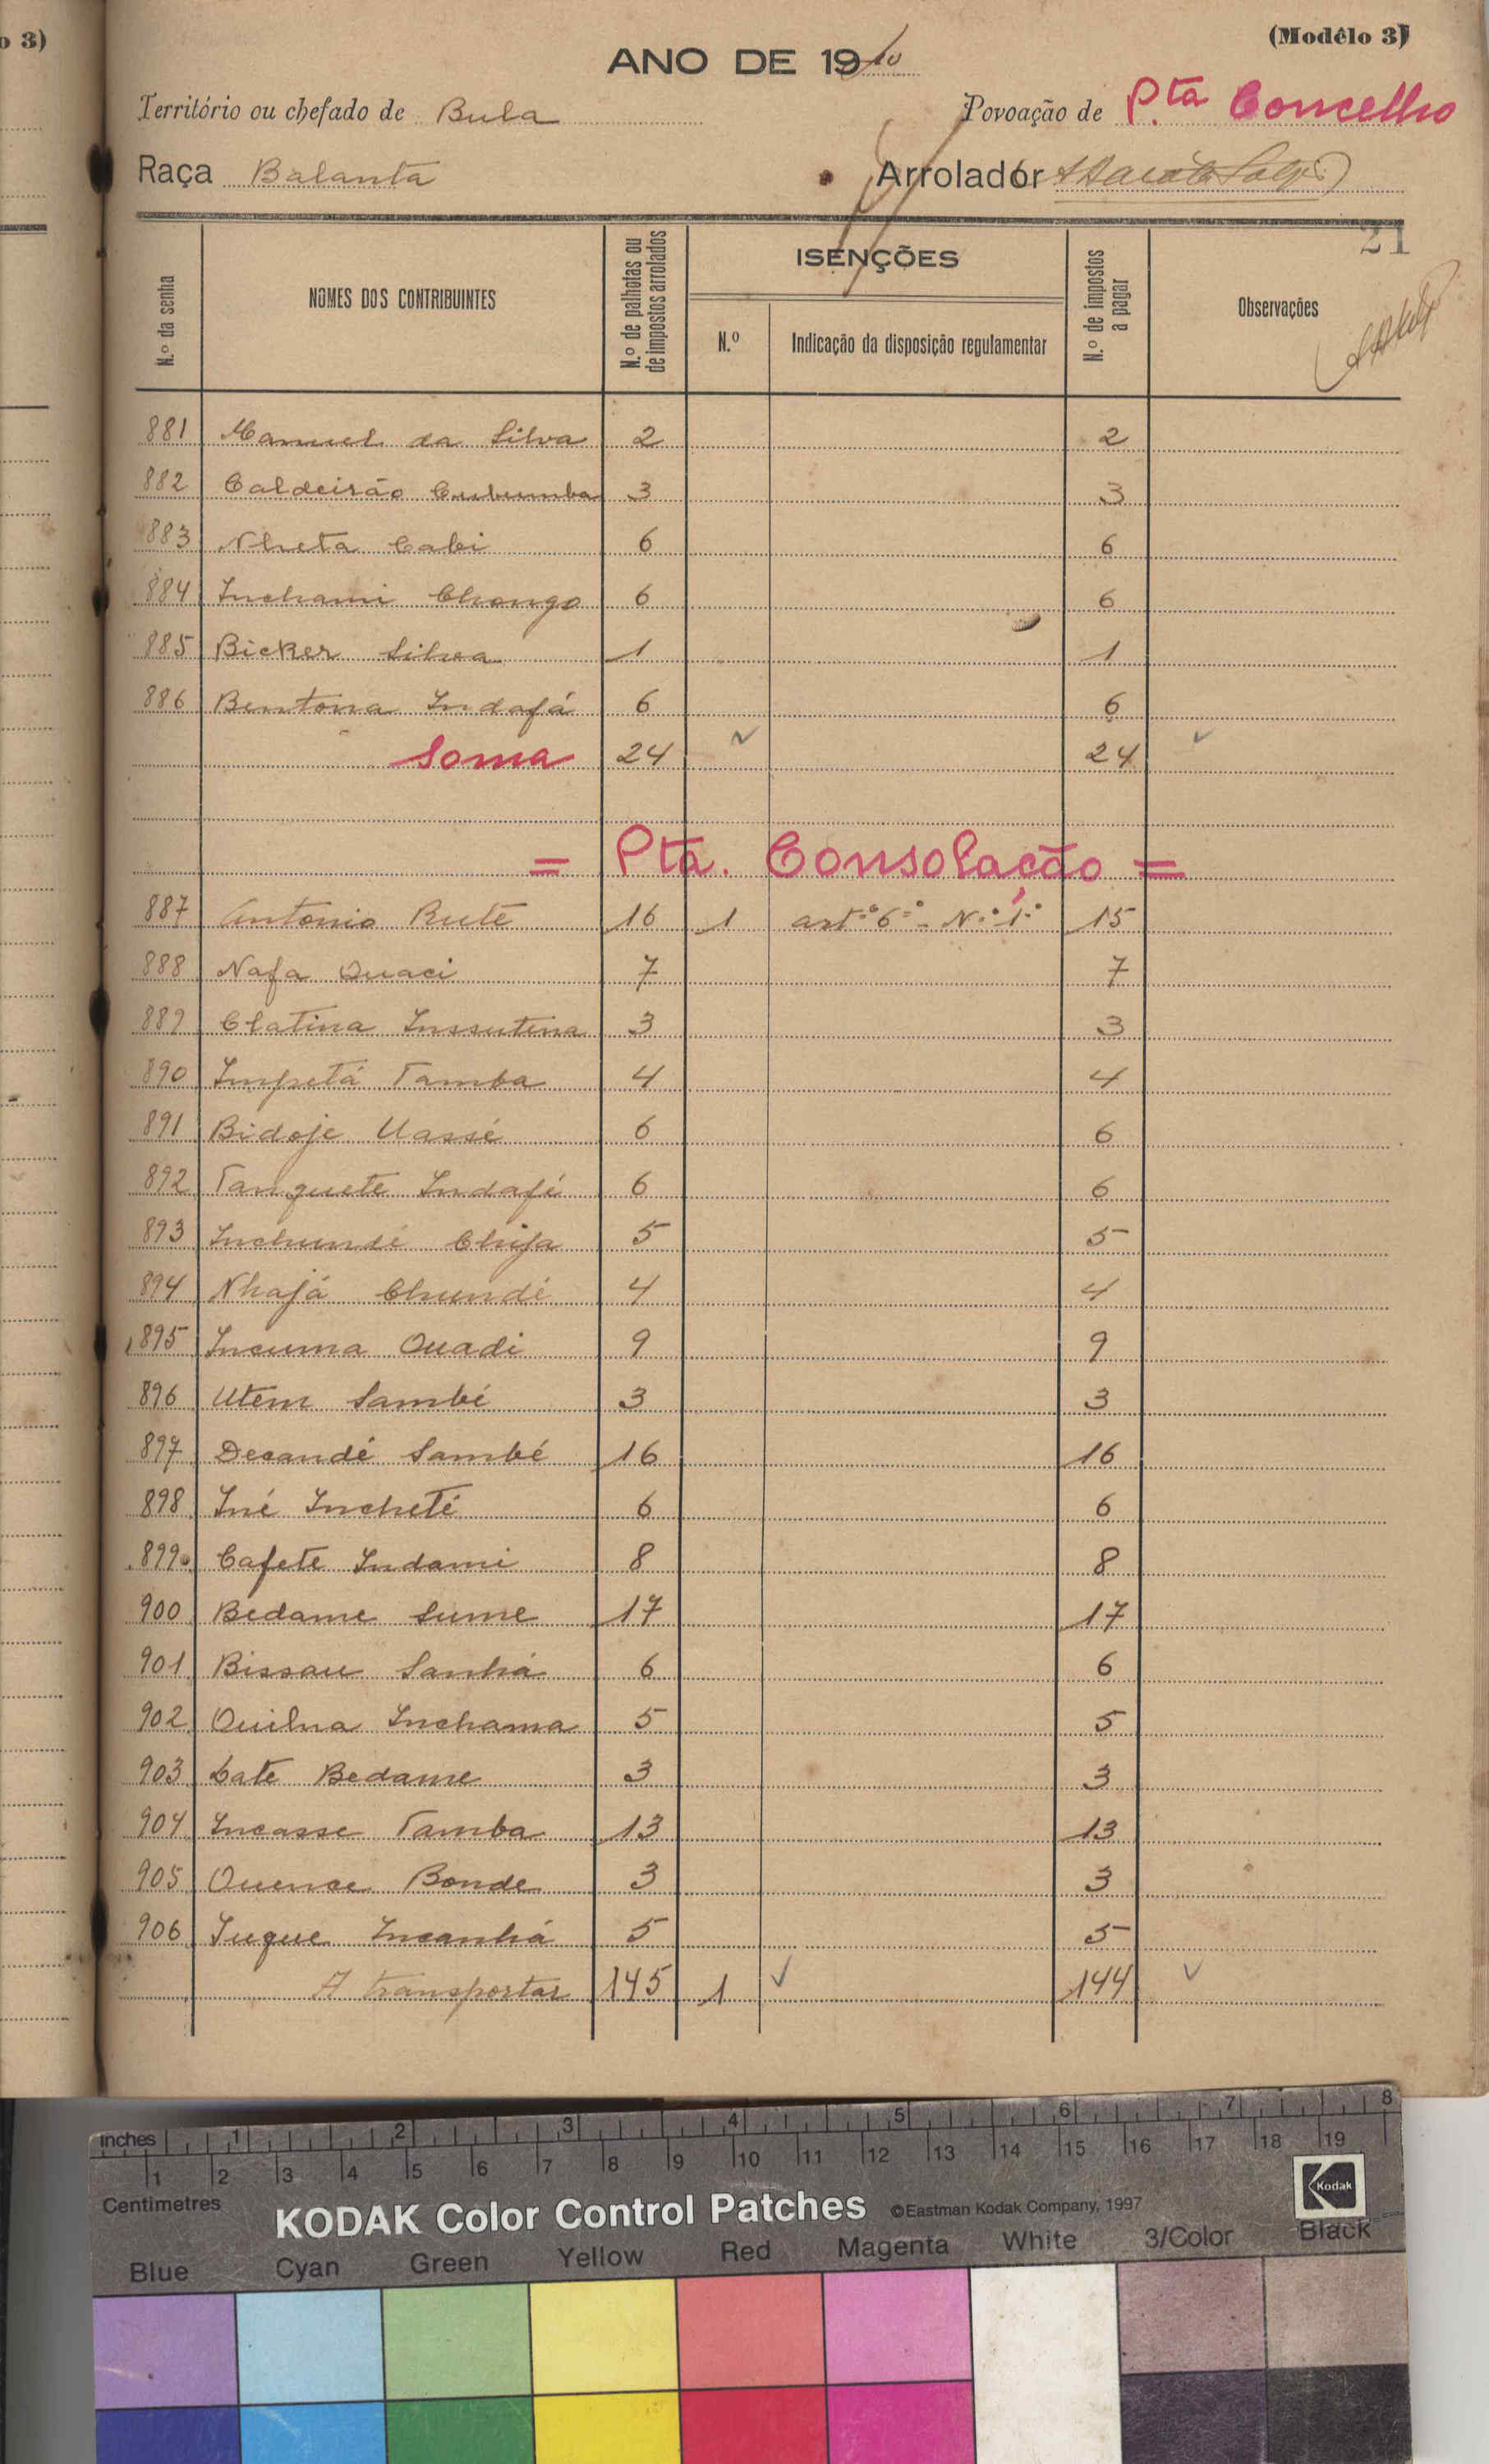 o 3)
(Modêlo 3)
ANO DE 1940
Território ou chefado de Bula
Povoação de P.ta Concelho
Raça Balanta
Arrolador
21
N.º da senha
NOMES DOS CONTRIBUINTES
N.º de palhotas ou de impostos arrolados
ISENÇÕES
N.º
Indicação da disposição regulamentar
N.º de impostos a pagar
Observações
881 Manuel da Silva 2 2
882 Caldeirão Cubumba 3 3
883 Nheta Cabi 6 6
884 Inchami Chongo 6 6
885 Bicker Silva 1 1
886 Bentona Indafá 6 6
Soma 24 24
= Pta. Consolação =
887 Antonio Bute 16 1 art.º 6.º - N.º 1.º 15
888 Nafa Quaci 7 7
889 Clatina Inssutina 3 3
890 Impetá Tamba 4 4
891 Bidoje Uassé 6 6
892 Tanquete Indafé 6 6
893 Inchundé Chifa 5 5
894 Nhajá Chundé 4 4
895 Incuma Quadi 9 9
896 Utem Sambé 3 3
897 Decandé Sambé 16 16
898 Iné Incheté 6 6
899 Cafete Indami 8 8
900 Bedame Sume 17 17
901 Bissau Sanhá 6 6
902 Quilna Inchama 5 5
903 Late Bedame 3 3
904 Incasse Tamba 13 13
905 Quence Bonde 3 3
906 Iuque Incanhá 5 5
A transportar 145 1 144
inches 1 2 3 4 5 6 7 8
1 2 3 4 5 6 7 8 9 10 11 12 13 14 15 16 17 18 19
Centimetres
KODAK Color Control Patches ©Eastman Kodak Company, 1997
Kodak
Blue Cyan Green Yellow Red Magenta White 3/Color Black